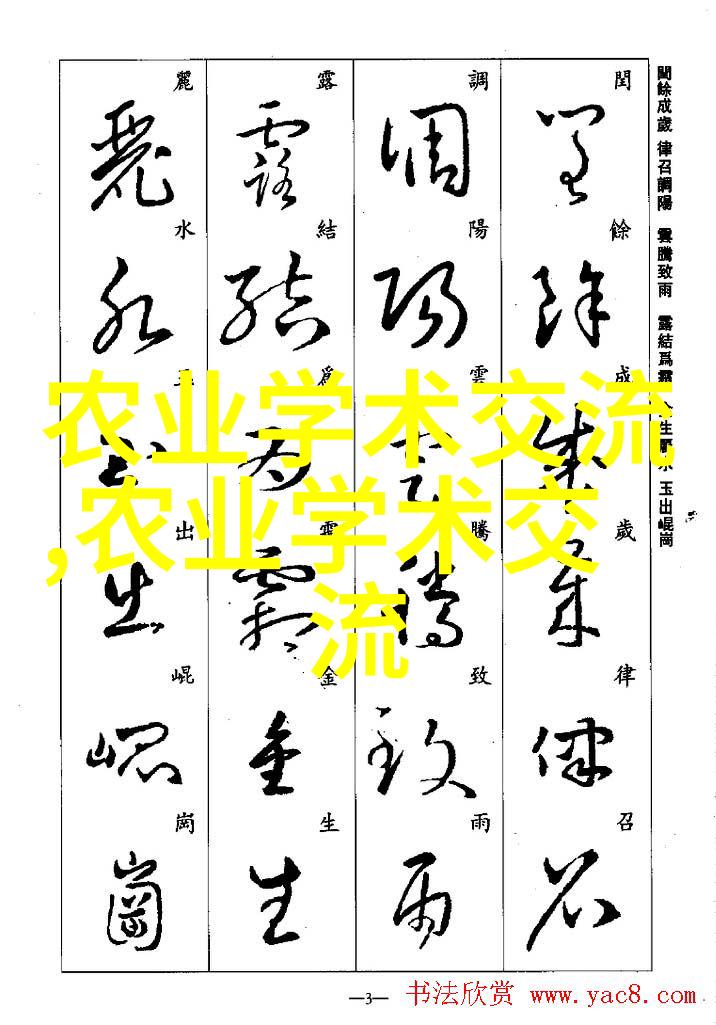 閏餘成歲 律召調陽 雲騰致雨 露結爲霜 金生麗水 玉出崐崗
閏餘成歲律召
調陽雲騰致雨
露結爲霜金生
麗水玉出崐崗
农业学术交流
,农业学术交
流
—3—
书法欣赏 www.yac8.com